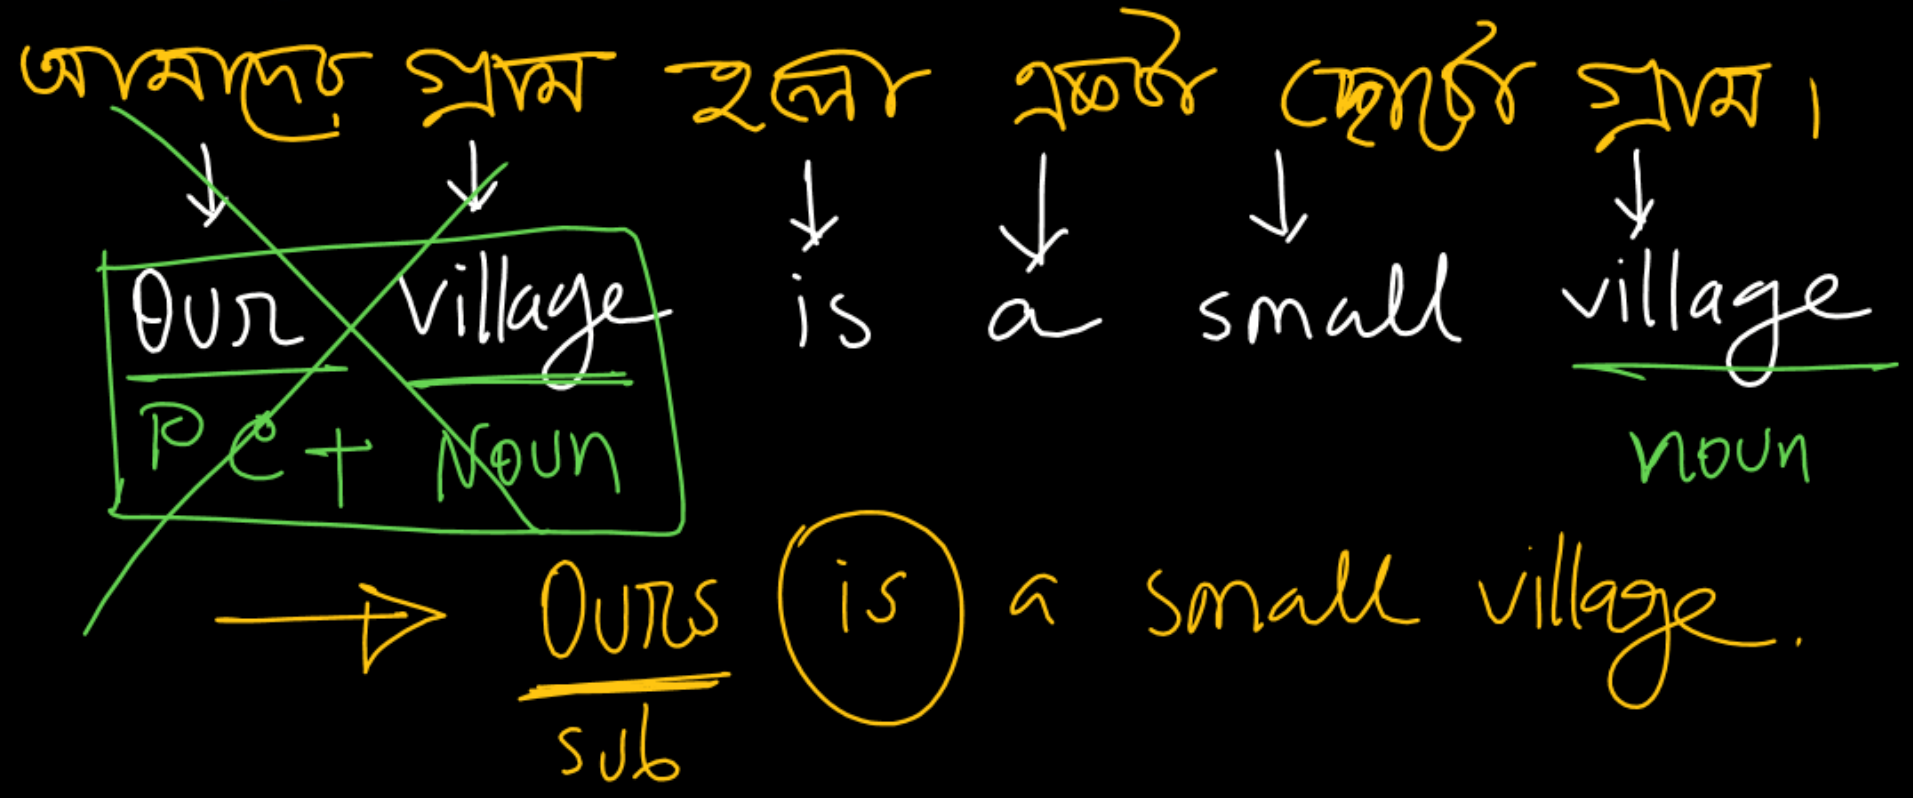 আমাদের গ্রাম হলো একটা ছোটো গ্রাম।
Our village is a small village
PC + Noun noun
Ours is a small village.
sub